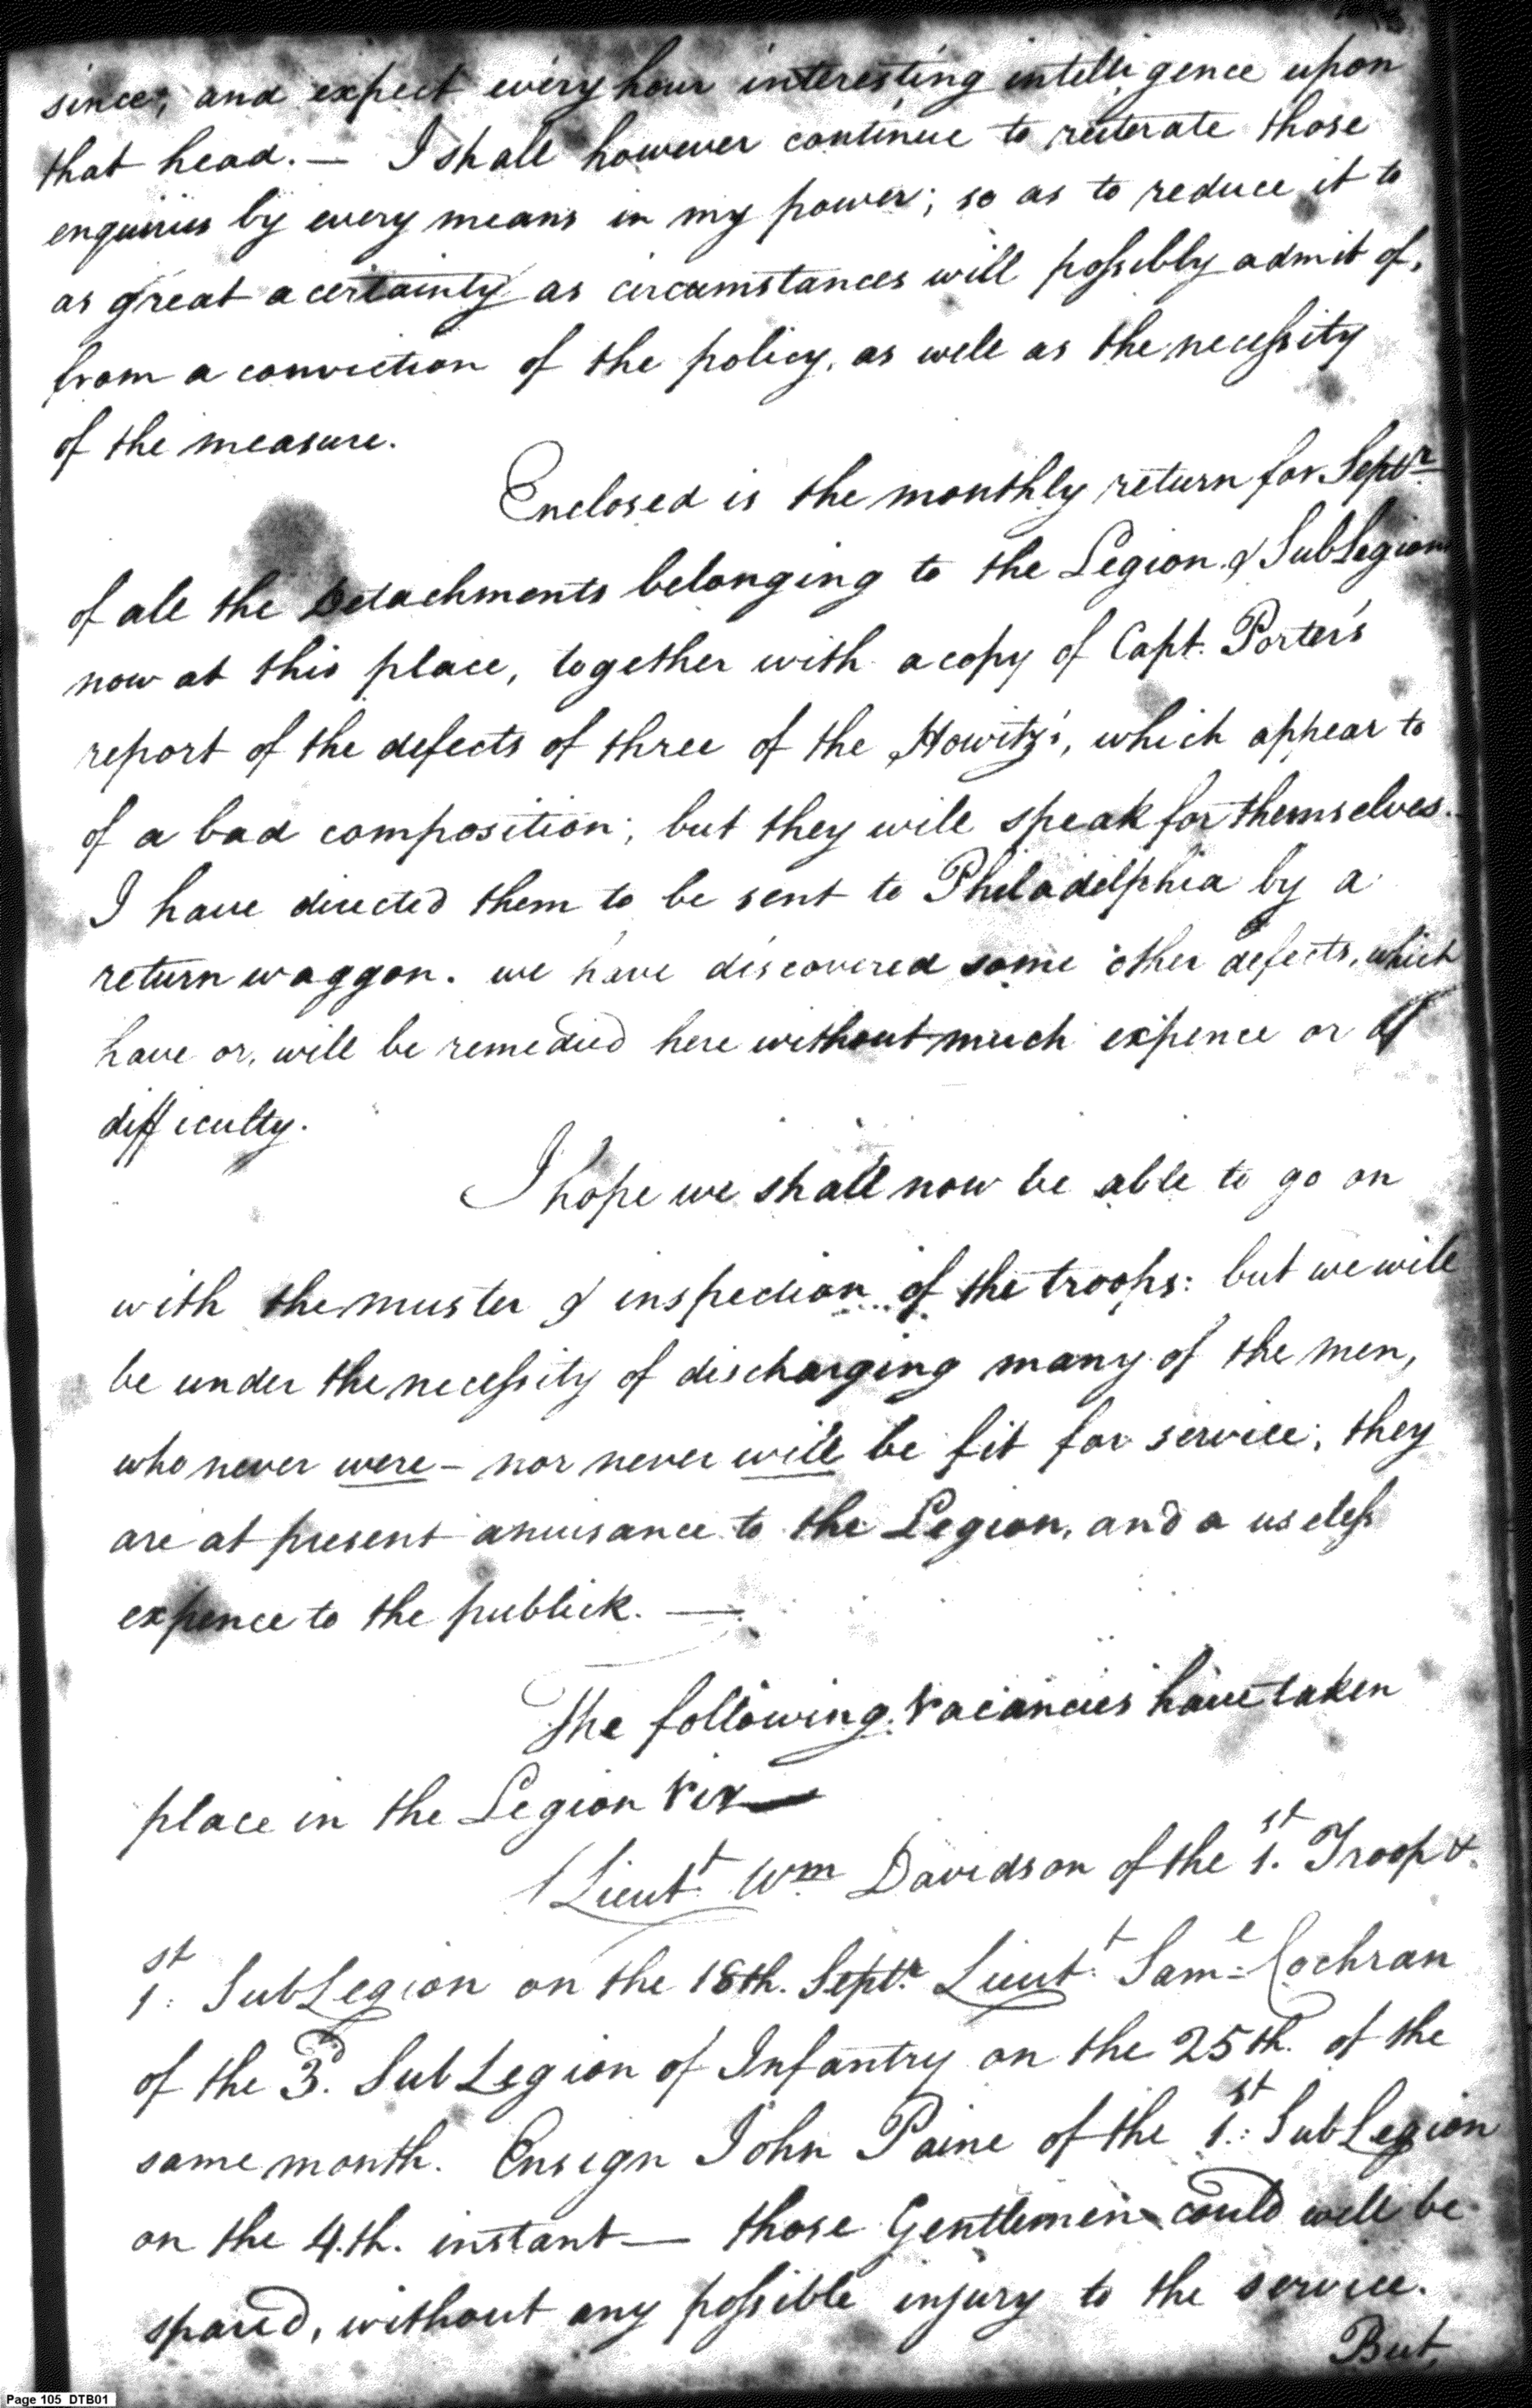 since, and expect every hour interesting intelligence upon
that head. — I shall however continue to reiterate those
enquiries by every means in my power; so as to reduce it to
as great a certainty as circumstances will possibly admit of,
from a conviction of the policy, as well as the necessity
of the measure.
Enclosed is the monthly return for Septr.
of all the Detachments belonging to the Legion & SubLegions
now at this place, together with a copy of Capt. Porter's
report of the defects of three of the Howitz's, which appear to
of a bad composition; but they will speak for themselves.
I have directed them to be sent to Philadelphia by a
return waggon. we have discovered some other defects, which
have or, will be remedied here without much expence or
difficulty.
I hope we shall now be able to go on
with the muster & inspection of the troops: but we will
be under the necessity of discharging many of the men,
who never were – nor never will be fit for service; they
are at present a nuisance to the Legion, and a useless
expence to the publick. —
The following Vacancies have taken
place in the Legion Viz—
Lieut.t Wm Davidson of the 1.st Troop &
1.st SubLegion on the 18th. Septr. Lieut.t Sam.l Cochran
of the 3.d SubLegion of Infantry on the 25th. of the
same month. Ensign John Paine of the 1.st SubLegion
on the 4.th. instant — those Gentlemen could well be
spared, without any possible injury to the service.
But,
Page 105 DTB01